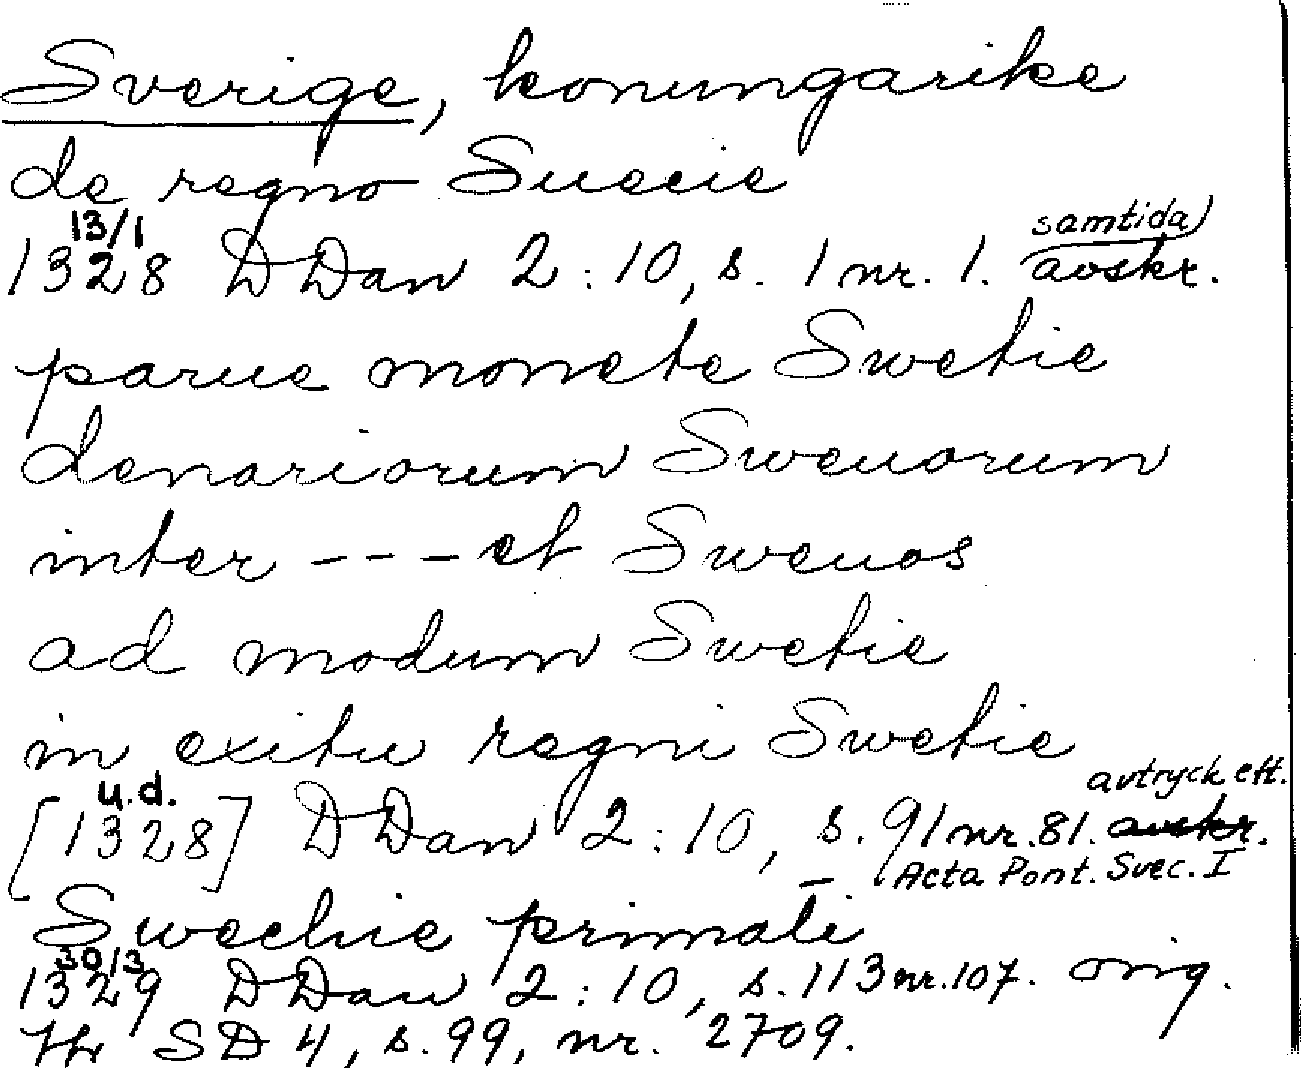 Sverige, konungarike
de regno Suecie
13/1 samtida
1328 DDan 2:10, s. 1 nr. 1. avskr.
parue monete Swetie
denariorum Sweuorum
inter --- et Sweuos
ad modum Swetie
in exitu regni Swetie
u.d. avtryck eft.
[1328] DDan 2:10, s. 91 nr. 81. avskr.
Acta Pont. Svec. I
Swechie primati
30/3
1329 DDan 2:10, s. 113 nr. 107. orig.
SD 4, s. 99, nr. 2709.